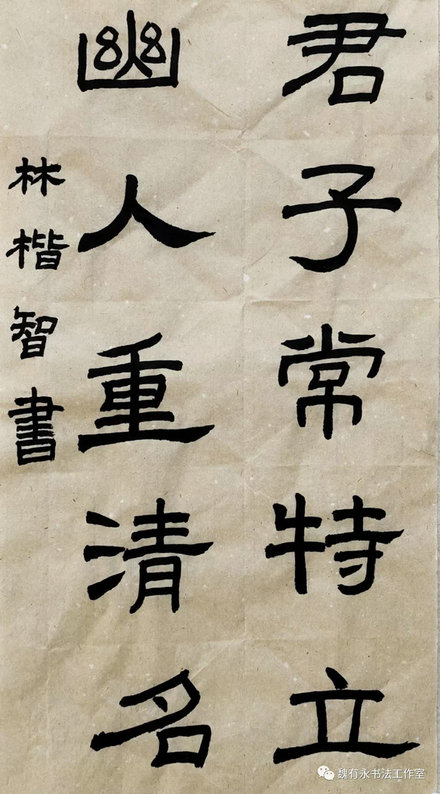 君子常特立
幽人重清名
林楷智書
魏有永书法工作室